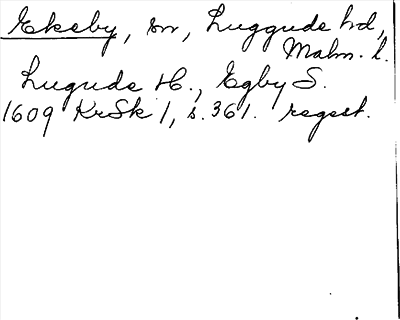 Ekeby, sn, Luggude hd,
Malm. l.
Lugude H., Egby S.
1609 KrSk 1, s. 361. regest.